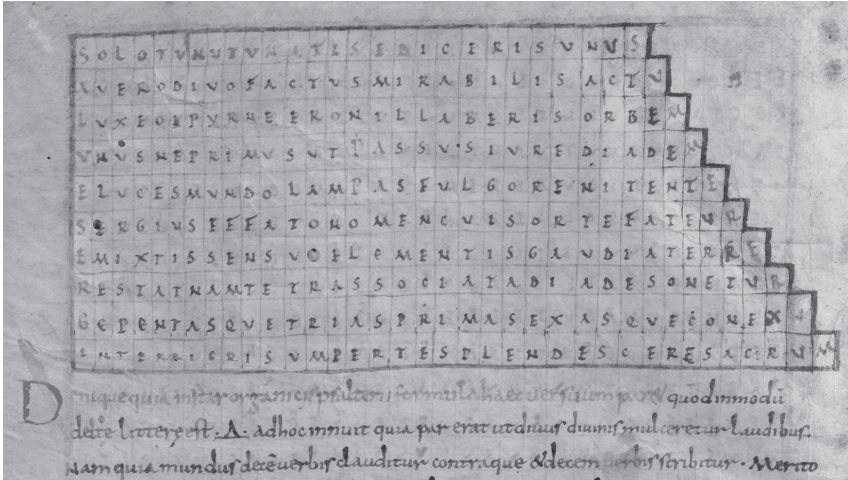 SOLOTVNVTVNATISEDICERISVNVS
AVERODIVOFACTVSMIRABILISACTV
LVXEOEPYRNEERONILLABERISORBEM
VNVSNEPRIMVSVTPASSVSIVREDIADEM
ELVCESMVNDOLAMPASFVLGORENITENTE
SERGIVSEFFATONOMENCVISORTEFATEVR
EMIXTISSENSVOELEMENTISGAVDIATERRE
RESTATNAMTETRASSOCIATADIADESONETVR
GEPENTASQVETRIASPRIMASEXASQVECONEXV
INTERRISRISVMPERTESPLENDESCERESACRVM
Denique quia instar organicis psalterii formula haec versuum par& quod in modū
delte littere est · Δ · ad hoc innuit quia par erat ut divus divinis mulceretur laudibus.
Nam quia mundus decē verbis clauditur contraque & decem verbis scribitur · Merito